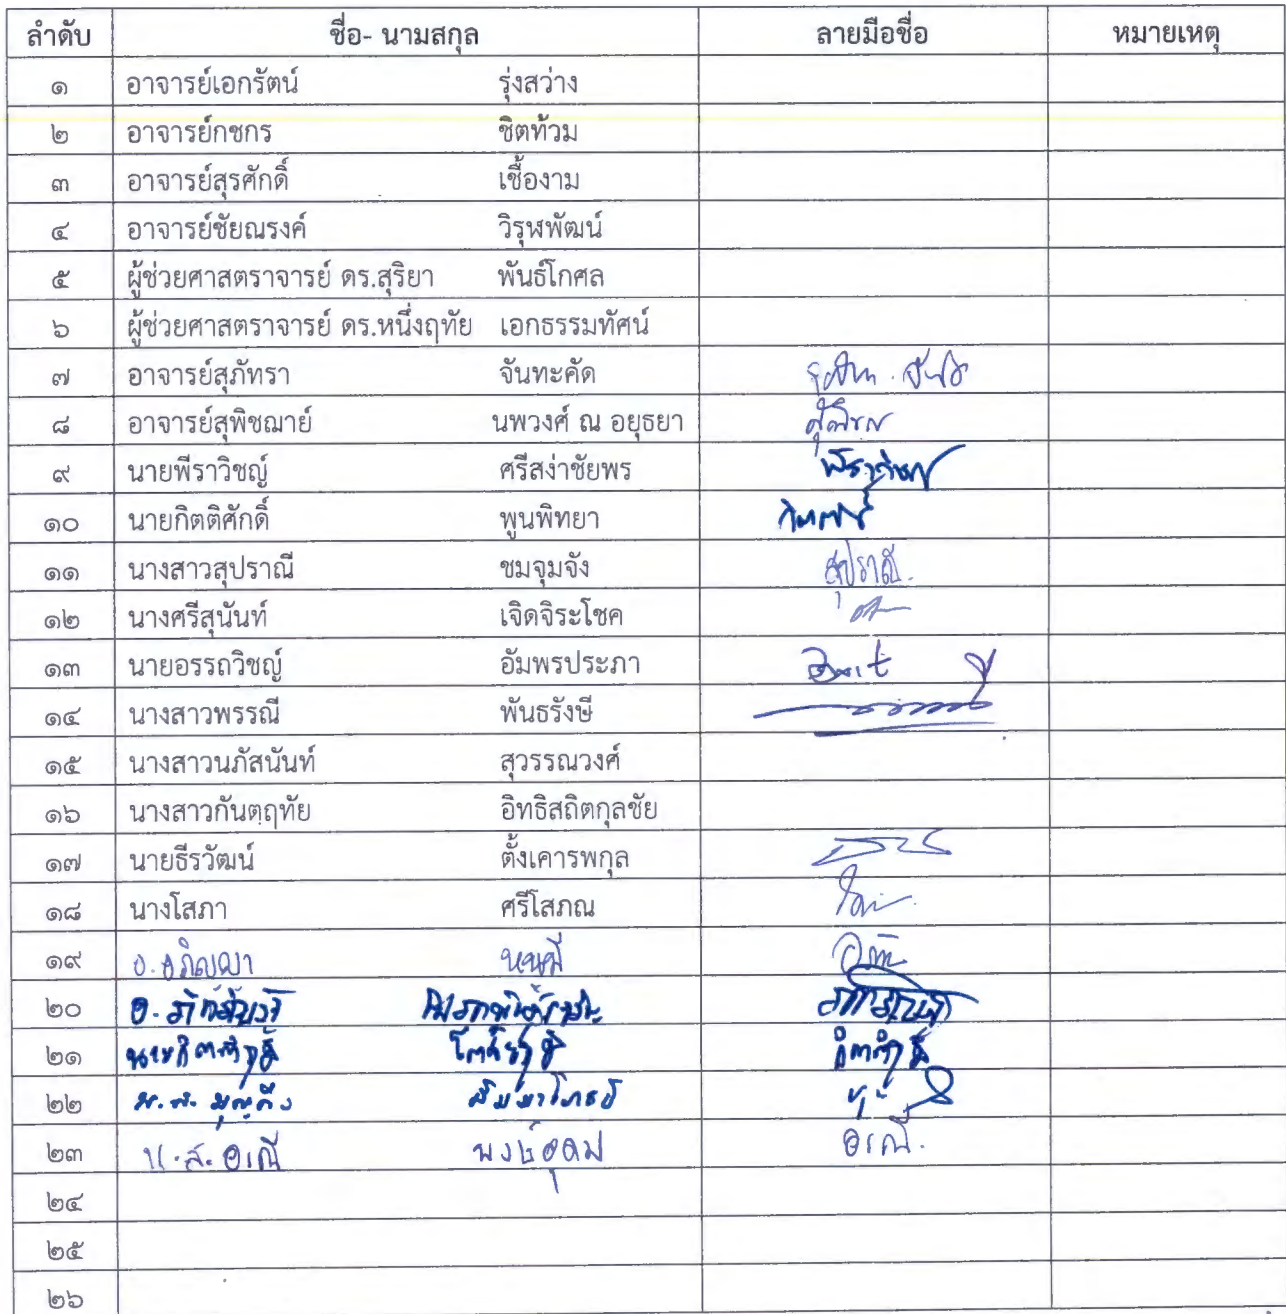 ลำดับ ชื่อ- นามสกุล ลายมือชื่อ หมายเหตุ
๑ อาจารย์เอกรัตน์ รุ่งสว่าง
๒ อาจารย์กชกร ชิตท้วม
๓ อาจารย์สุรศักดิ์ เชื้องาม
๔ อาจารย์ชัยณรงค์ วิรุฬพัฒน์
๕ ผู้ช่วยศาสตราจารย์ ดร.สุริยา พันธ์โกศล
๖ ผู้ช่วยศาสตราจารย์ ดร.หนึ่งฤทัย เอกธรรมทัศน์
๗ อาจารย์สุภัทรา จันทะคัด
๘ อาจารย์สุพิชฌาย์ นพวงศ์ ณ อยุธยา
๙ นายพีราวิชญ์ ศรีสง่าชัยพร
๑๐ นายกิตติศักดิ์ พูนพิทยา
๑๑ นางสาวสุปราณี ชมจุมจัง สุปราณี.
๑๒ นางศรีสุนันท์ เจิดจิระโชค
๑๓ นายอรรถวิชญ์ อัมพรประภา
๑๔ นางสาวพรรณี พันธรังษี
๑๕ นางสาวนภัสนันท์ สุวรรณวงศ์
๑๖ นางสาวกันตฤทัย อิทธิสถิตกุลชัย
๑๗ นายธีรวัฒน์ ตั้งเคารพกุล
๑๘ นางโสภา ศรีโสภณ
๑๙ อ.อภิญญา
๒๐ อ.
๒๑
๒๒ น.ส.
๒๓ น.ส. อรณี พงษ์อุดม อรณี.
๒๔
๒๕
๒๖